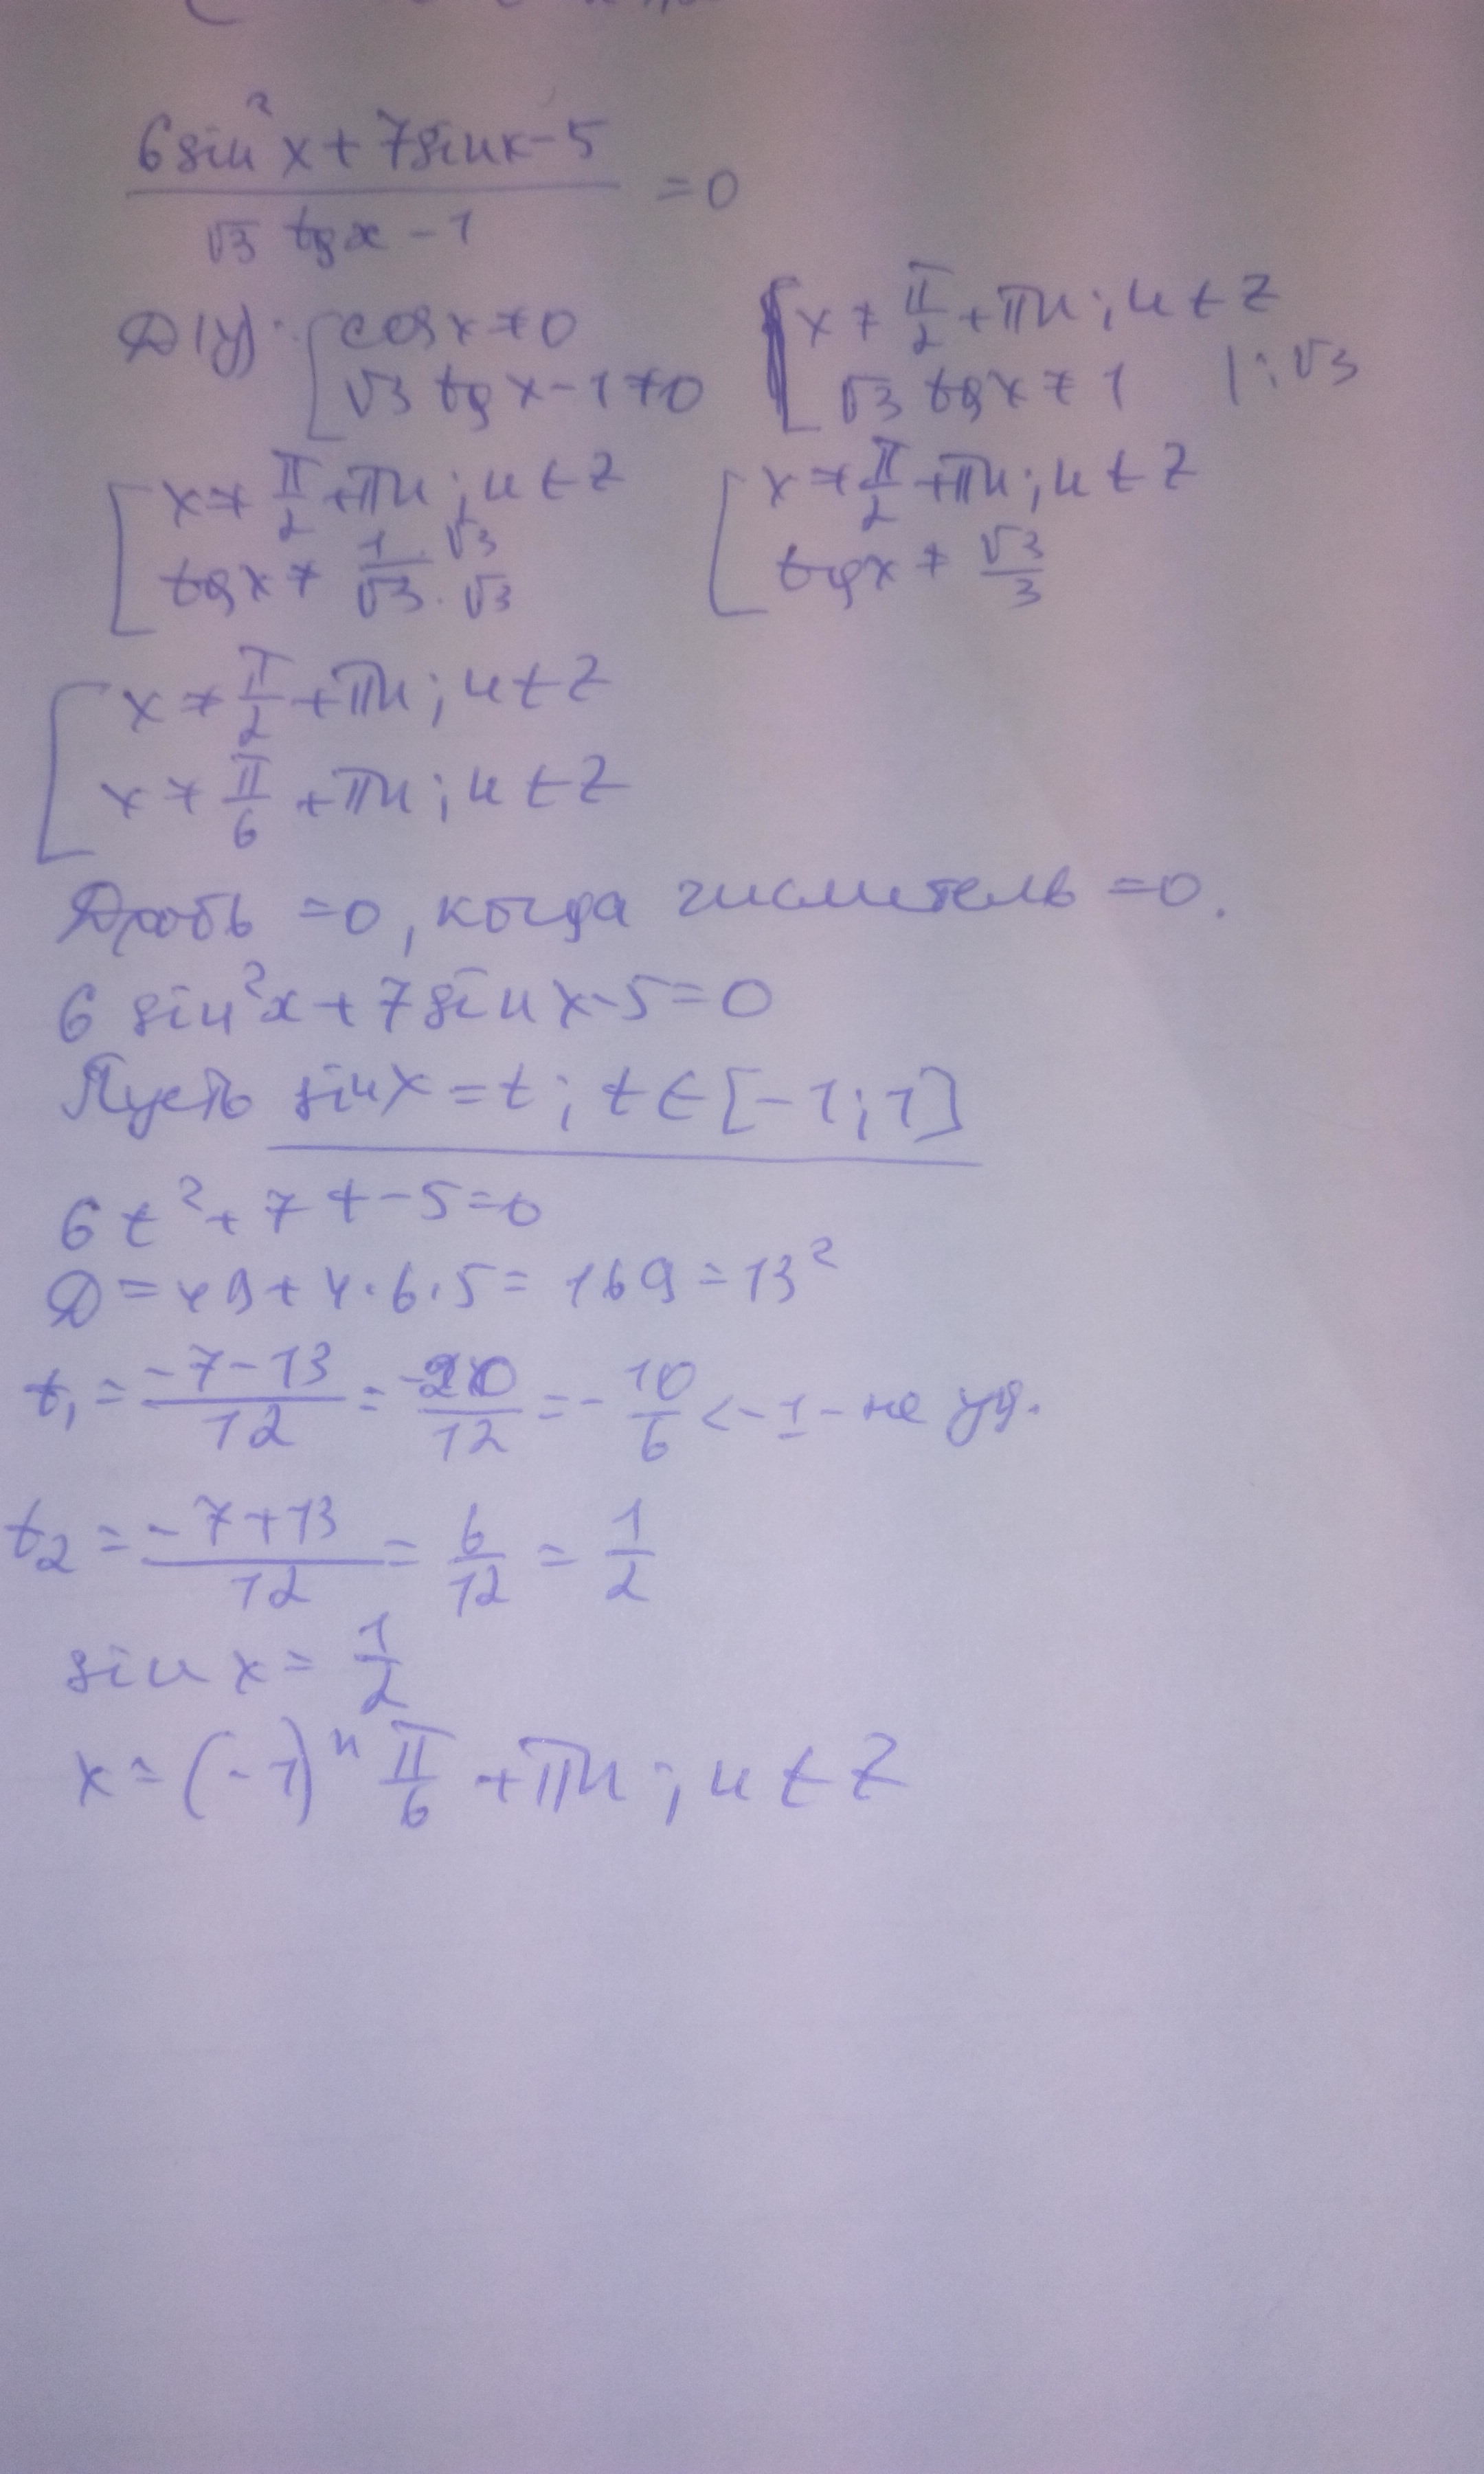 6sin²x + 7sinx - 5
——————————— = 0
√3 tgx - 1
D(y): [ cosx ≠ 0      [ x ≠ π/2 + πn; n ∈ Z
√3 tgx - 1 ≠ 0      √3 tgx ≠ 1   | : √3
[ x ≠ π/2 + πn; n ∈ Z      [ x ≠ π/2 + πn; n ∈ Z
tgx ≠ 1·√3/√3·√3      tgx ≠ √3/3
[ x ≠ π/2 + πn; n ∈ Z
x ≠ π/6 + πn; n ∈ Z
Дробь = 0, когда числитель = 0.
6 sin²x + 7sinx - 5 = 0
Пусть sinx = t; t ∈ [-1; 1]
6t² + 7t - 5 = 0
D = 49 + 4·6·5 = 169 = 13²
t₁ = -7-13/12 = -20/12 = -10/6 < -1 - не уд.
t₂ = -7+13/12 = 6/12 = 1/2
sin x = 1/2
x = (-1)ⁿ π/6 + πn; n ∈ Z